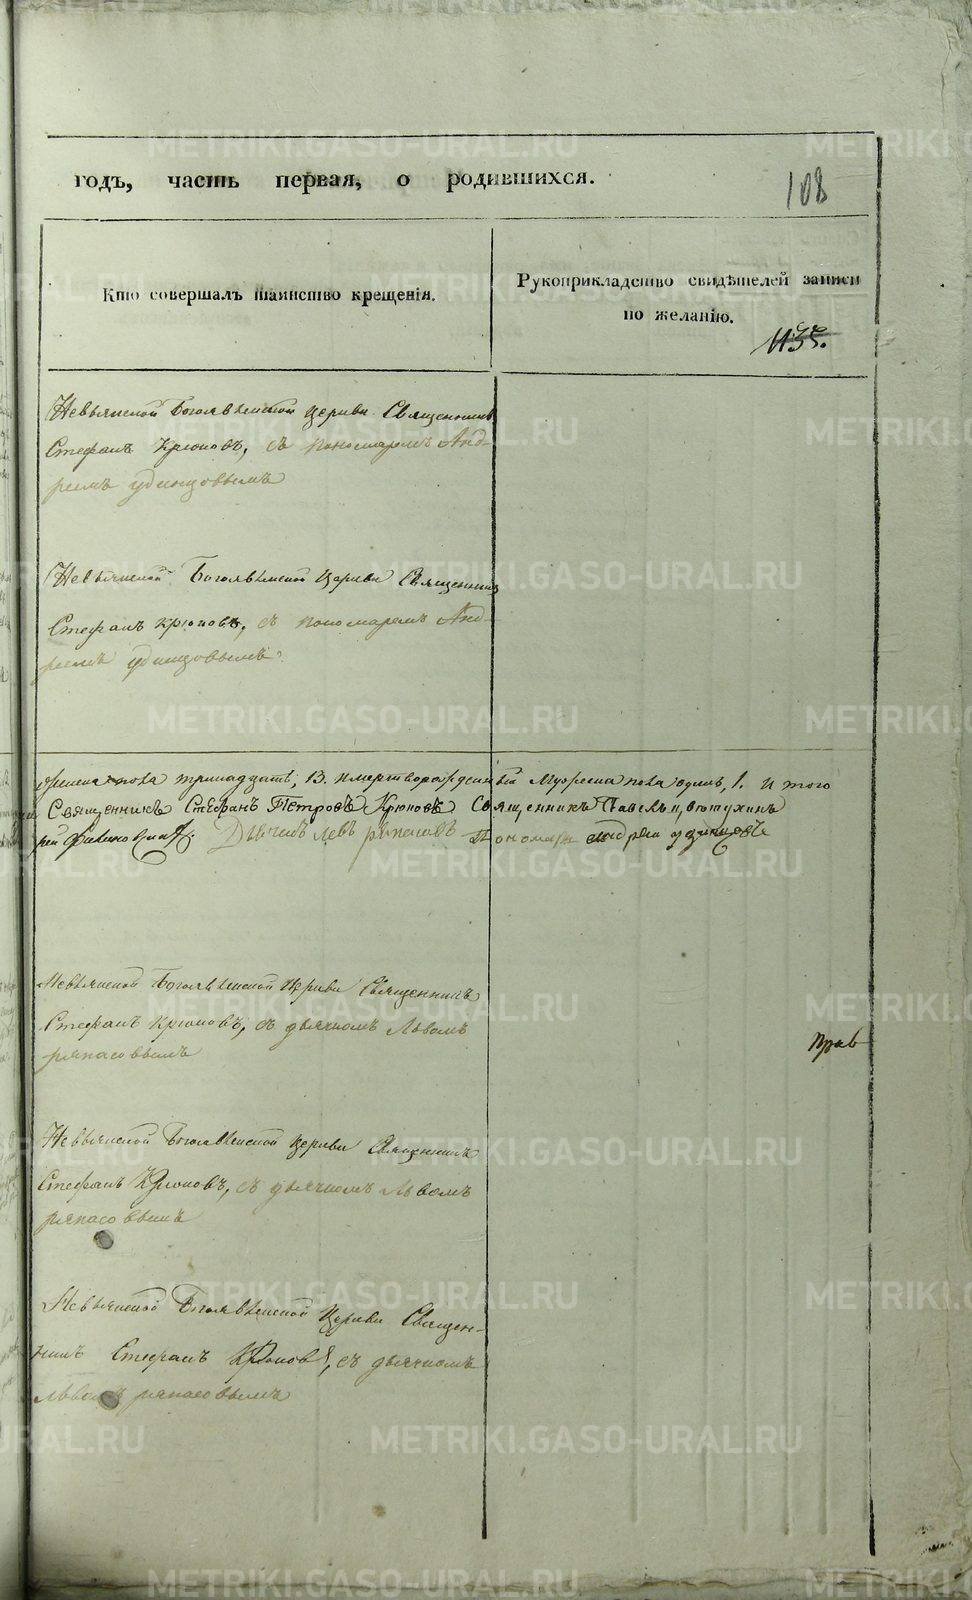 годъ, часть первая, о родившихся.
108
Кто совершалъ таинство крещенія.
Рукоприкладство свидѣтелей записи
по желанію.
Невьянской Богоявленской церкви Священникъ
Стефанъ Крюковъ, съ пономаремъ Анд-
реемъ удинцовымъ
Невьянской Богоявленской церкви Священникъ
Стефанъ Крюковъ, съ пономаремъ Анд-
реемъ удинцовымъ
пола тринадцать, 13. мертворожденный Мужеска пола одинъ, 1. и того
Священникъ Стефанъ Петровъ Крюковъ Священникъ Павелъ
Дьячекъ левъ ряпасовъ Пономарь андреи удинцовъ
Невьянской Богоявленской Церкви Священникъ
Стефанъ Крюковъ, съ дьячкомъ Львомъ
ряпасовымъ
Прав
Невьянской Богоявленской церкви Священникъ
Стефанъ Крюковъ, съ дьячкомъ Львомъ
ряпасовымъ
Невьянской Богоявленской Церкви Священ-
никъ Стефанъ Крюковъ, съ дьячкомъ
Львомъ ряпасовымъ
METRIKI.GASO-URAL.RU